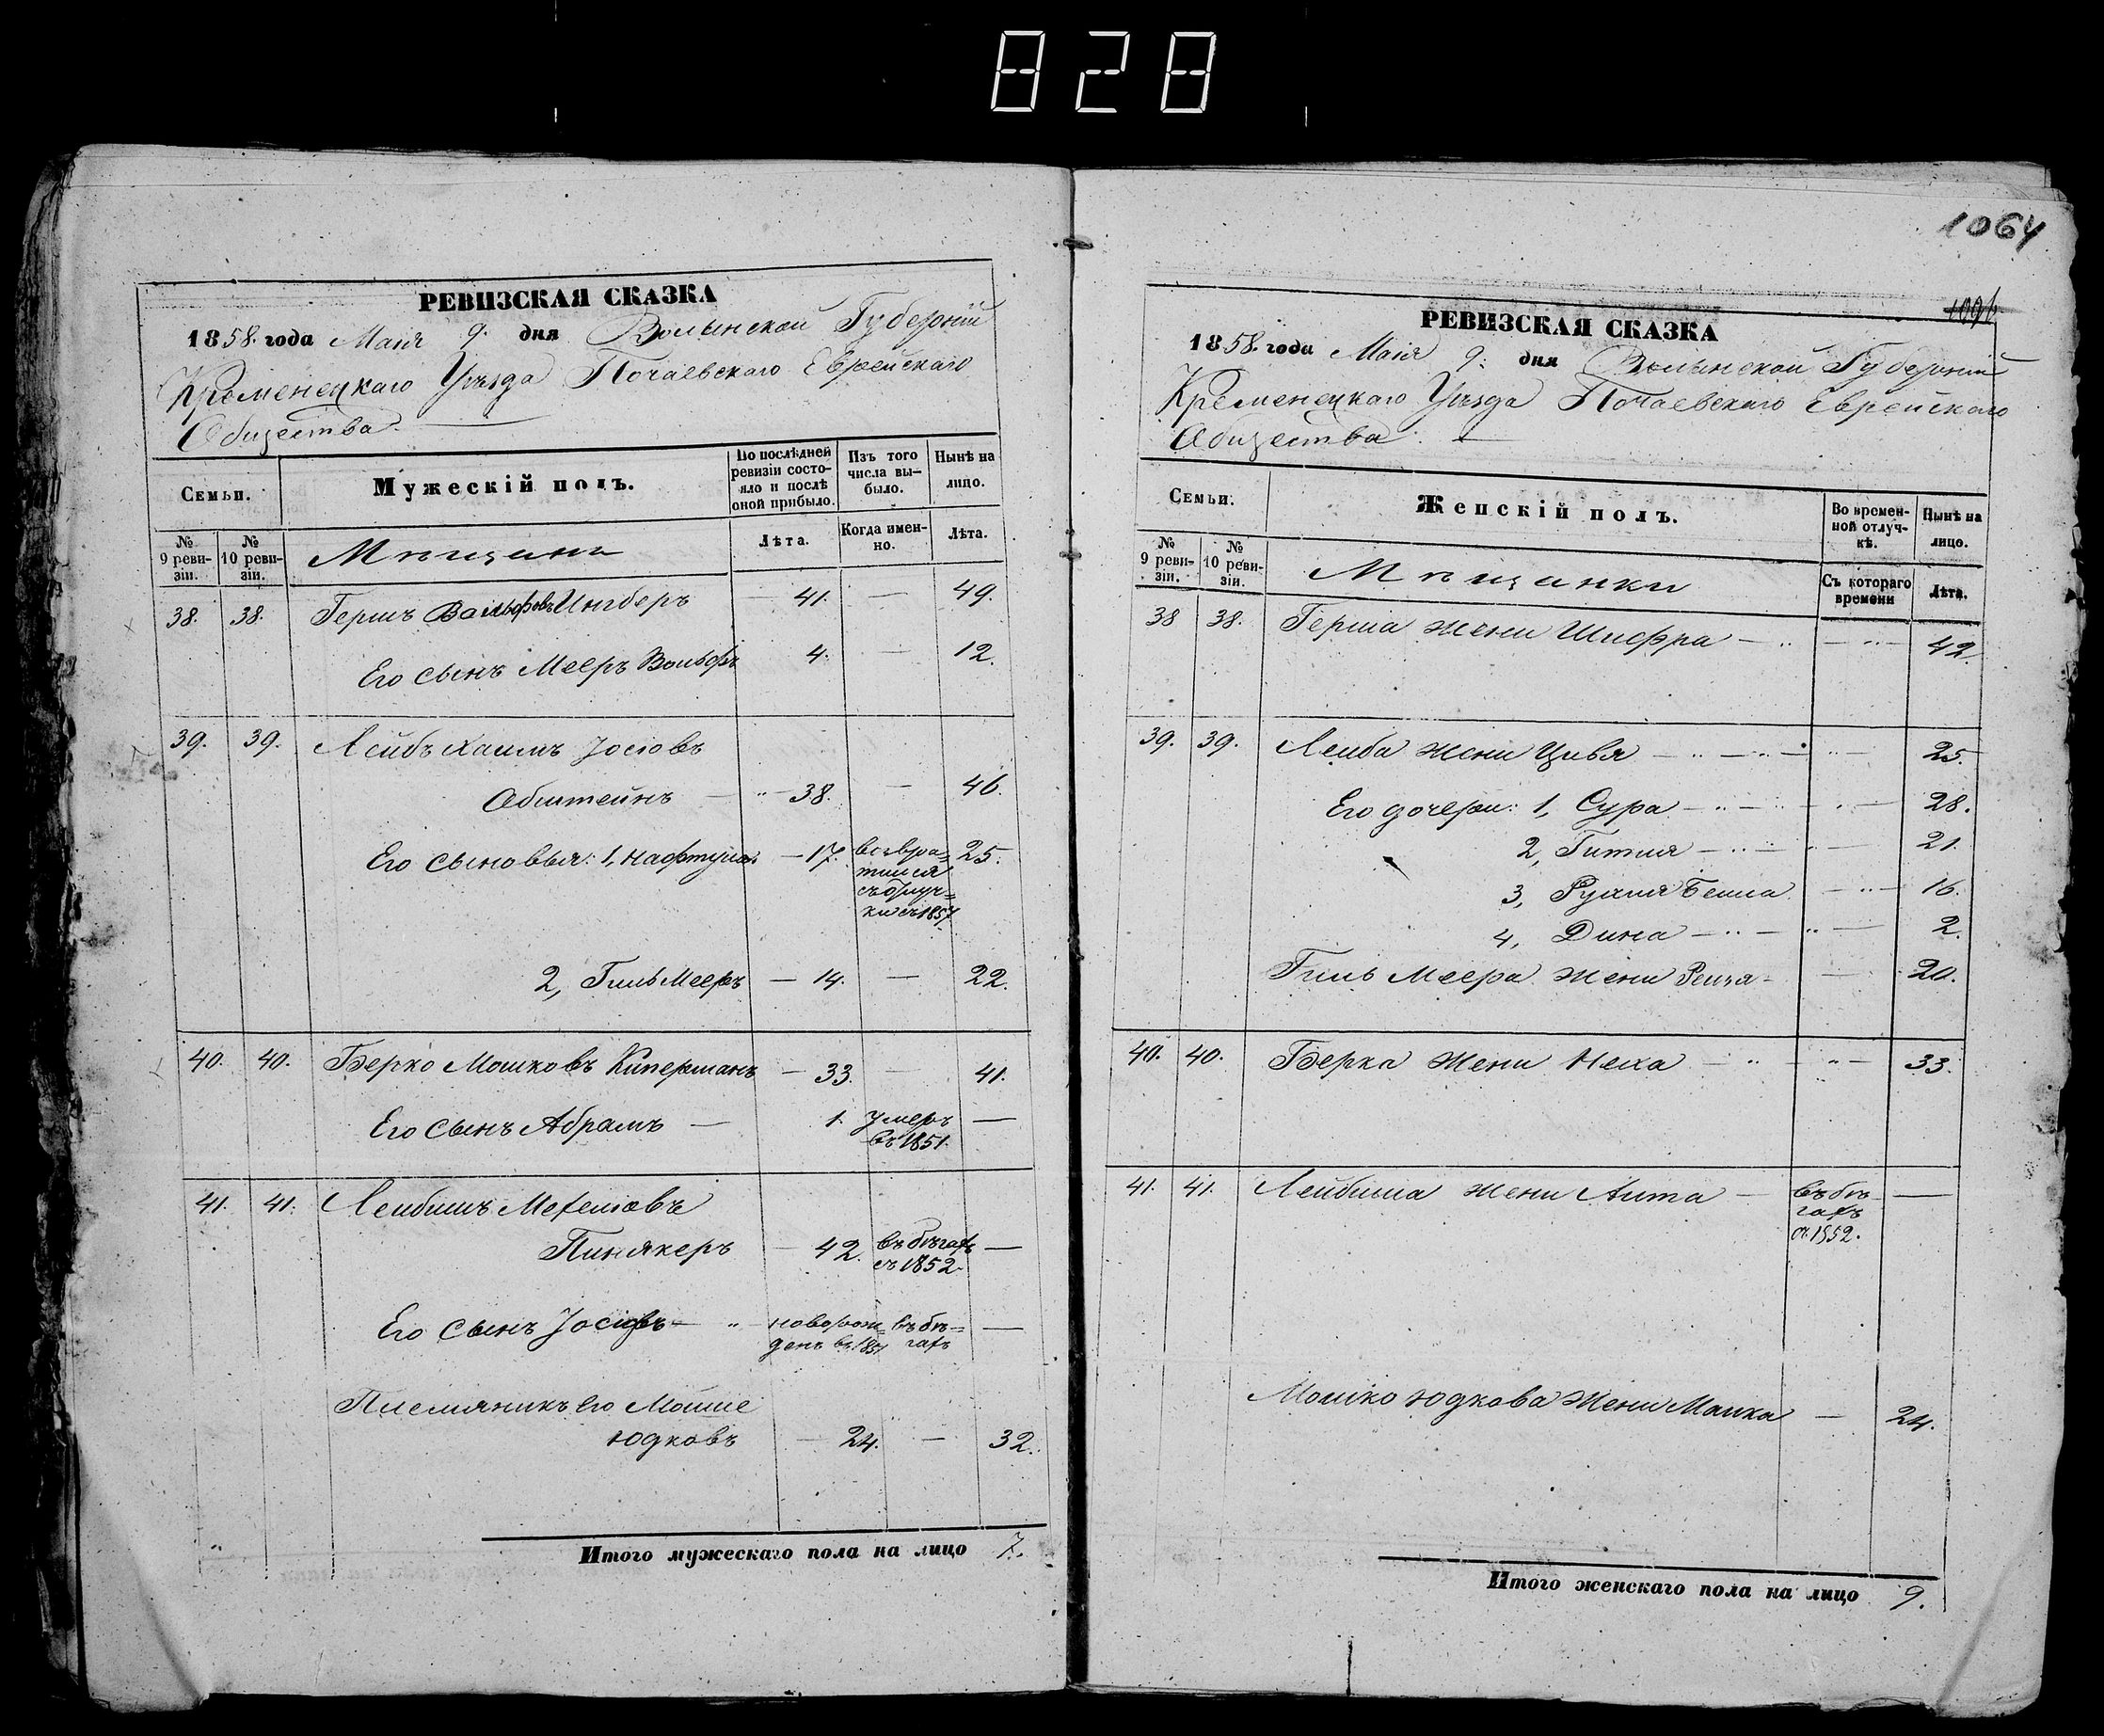 828
РЕВИЗСКАЯ СКАЗКА
1858. года Маія 9. дня Волынской Губерніи
Кременецкаго Уѣзда Почаевскаго Еврейскаго
Общества.
Семьи.
Мужескій полъ.
Во послѣдней ревизіи состояло и послѣ оной прибыло.
Изъ того числа выбыло.
Нынѣ на лицо.
№ 9 ревизіи.
№ 10 ревизіи.
Мѣщане
Лѣта.
Когда именно.
Лѣта.
38. 38. Гершъ Вольфовъ Ингберъ — 41. — 49.
Его сынъ Мееръ Вольфъ 4. — 12.
39. 39. Лейбъ Хаимъ Іосіовъ
Абштейнъ — 38. — 46.
Его сыновья: 1, Нафтула — 17. возвра=
тился
съ отлуч=
ки съ 1857 25.
2, Гиль Мееръ — 14. — 22.
40. 40. Берко Мошковъ Киперманъ — 33. — 41.
Его сынъ Абрамъ — 1. умеръ
въ 1851. —
41. 41. Лейбишъ
Пинякеръ — 42. въ бѣгахъ
съ 1852. —
Его сынъ — новорож=
денъ въ 1851 въ бѣ=
гахъ —
Племяникъ его Мошке
Юдковъ — 24. — 32.
Итого мужескаго пола на лицо 7.
1064
1096
РЕВИЗСКАЯ СКАЗКА
1858. года Маія 9. дня Волынской Губерніи
Кременецкаго Уѣзда Почаевскаго Еврейскаго
Общества. —
Семьи.
Женскій полъ.
Во временной отлучкѣ.
Нынѣ на лицо.
№ 9 ревизіи.
№ 10 ревизіи.
Мѣщанки
Съ котораго времени
Лѣта.
38 38. Герша жена Шифра — 42.
39. 39. Лейба жена Цивя — 25.
Его дочери: 1, Сура — 28.
2, Гитля — 21.
3, Рухля Бейла — 16.
4, Дина — 2.
Гиль Меера жена Рейзя — 20.
40. 40. Берка жена Неха — 33.
41. 41. Лейбиша жена Аита — въ бѣ=
гахъ
съ 1852. —
Мошко Юдкова жена Малка — 24.
Итого женскаго пола на лицо 9.